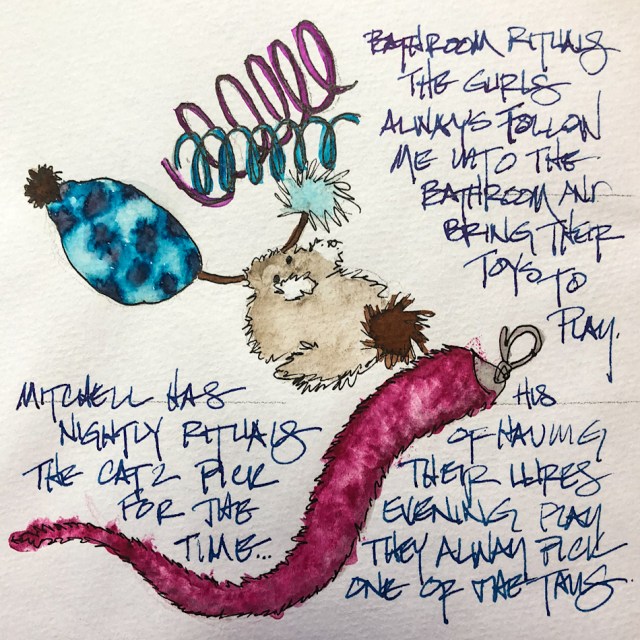 BATHROOM RITUALS
THE GURLS
ALWAYS FOLLOW
ME INTO THE
BATHROOM AND
BRING THEIR
TOYS TO
PLAY.
MITCHELL HAS HIS
NIGHTLY RITUALS OF HAVING
THE CATZ PICK THEIR LURES
FOR THE EVENING PLAY
TIME... THEY ALWAY PICK
ONE OF THE TAILS.